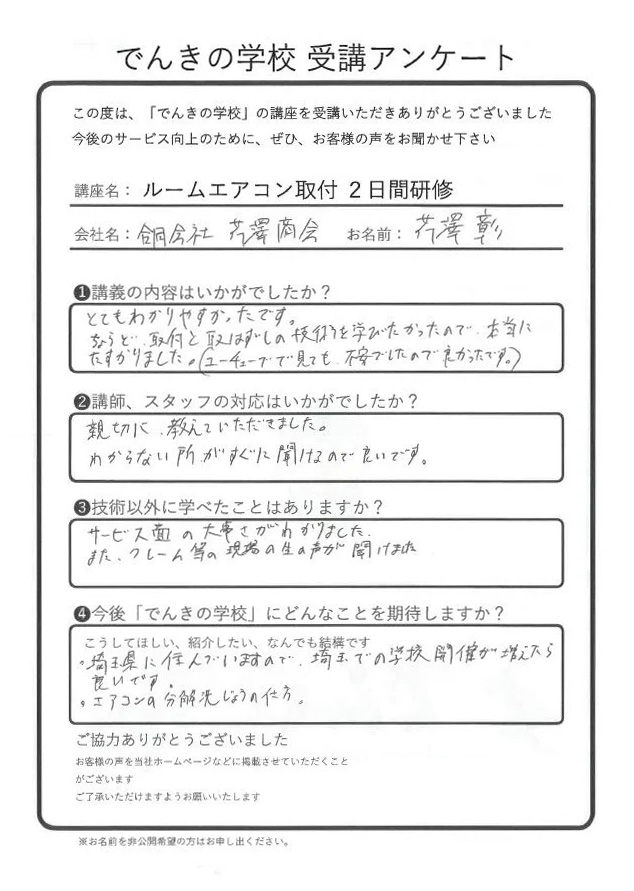 でんきの学校 受講アンケート
この度は、「でんきの学校」の講座を受講いただきありがとうございました
今後のサービス向上のために、ぜひ、お客様の声をお聞かせ下さい
講座名： ルームエアコン取付 2日間研修
会社名： 合同会社 芹澤商会 お名前： 芹澤 彰
❶講義の内容はいかがでしたか？
とてもわかりやすかったです。
ちょうど、取付と取はずしの技術を学びたかったので、本当に
たすかりました。(ユーチューブで見ても、不安でしたので良かったです。)
❷講師、スタッフの対応はいかがでしたか？
親切に、教えていただきました。
わからない所がすぐに聞けるので良いです。
❸技術以外に学べたことはありますか？
サービス面の大事さがわかりました。
また、クレーム等の現場の生の声が聞けました
❹今後「でんきの学校」にどんなことを期待しますか？
こうしてほしい、紹介したい、なんでも結構です
。埼玉県に住んでいますので、埼玉での学校開催が増えたら
良いです。
。エアコンの分解洗じょうの仕方。
ご協力ありがとうございました
お客様の声を当社ホームページなどに掲載させていただくこと
がございます
ご了承いただけますようお願いいたします
※お名前を非公開希望の方はお申し出ください。